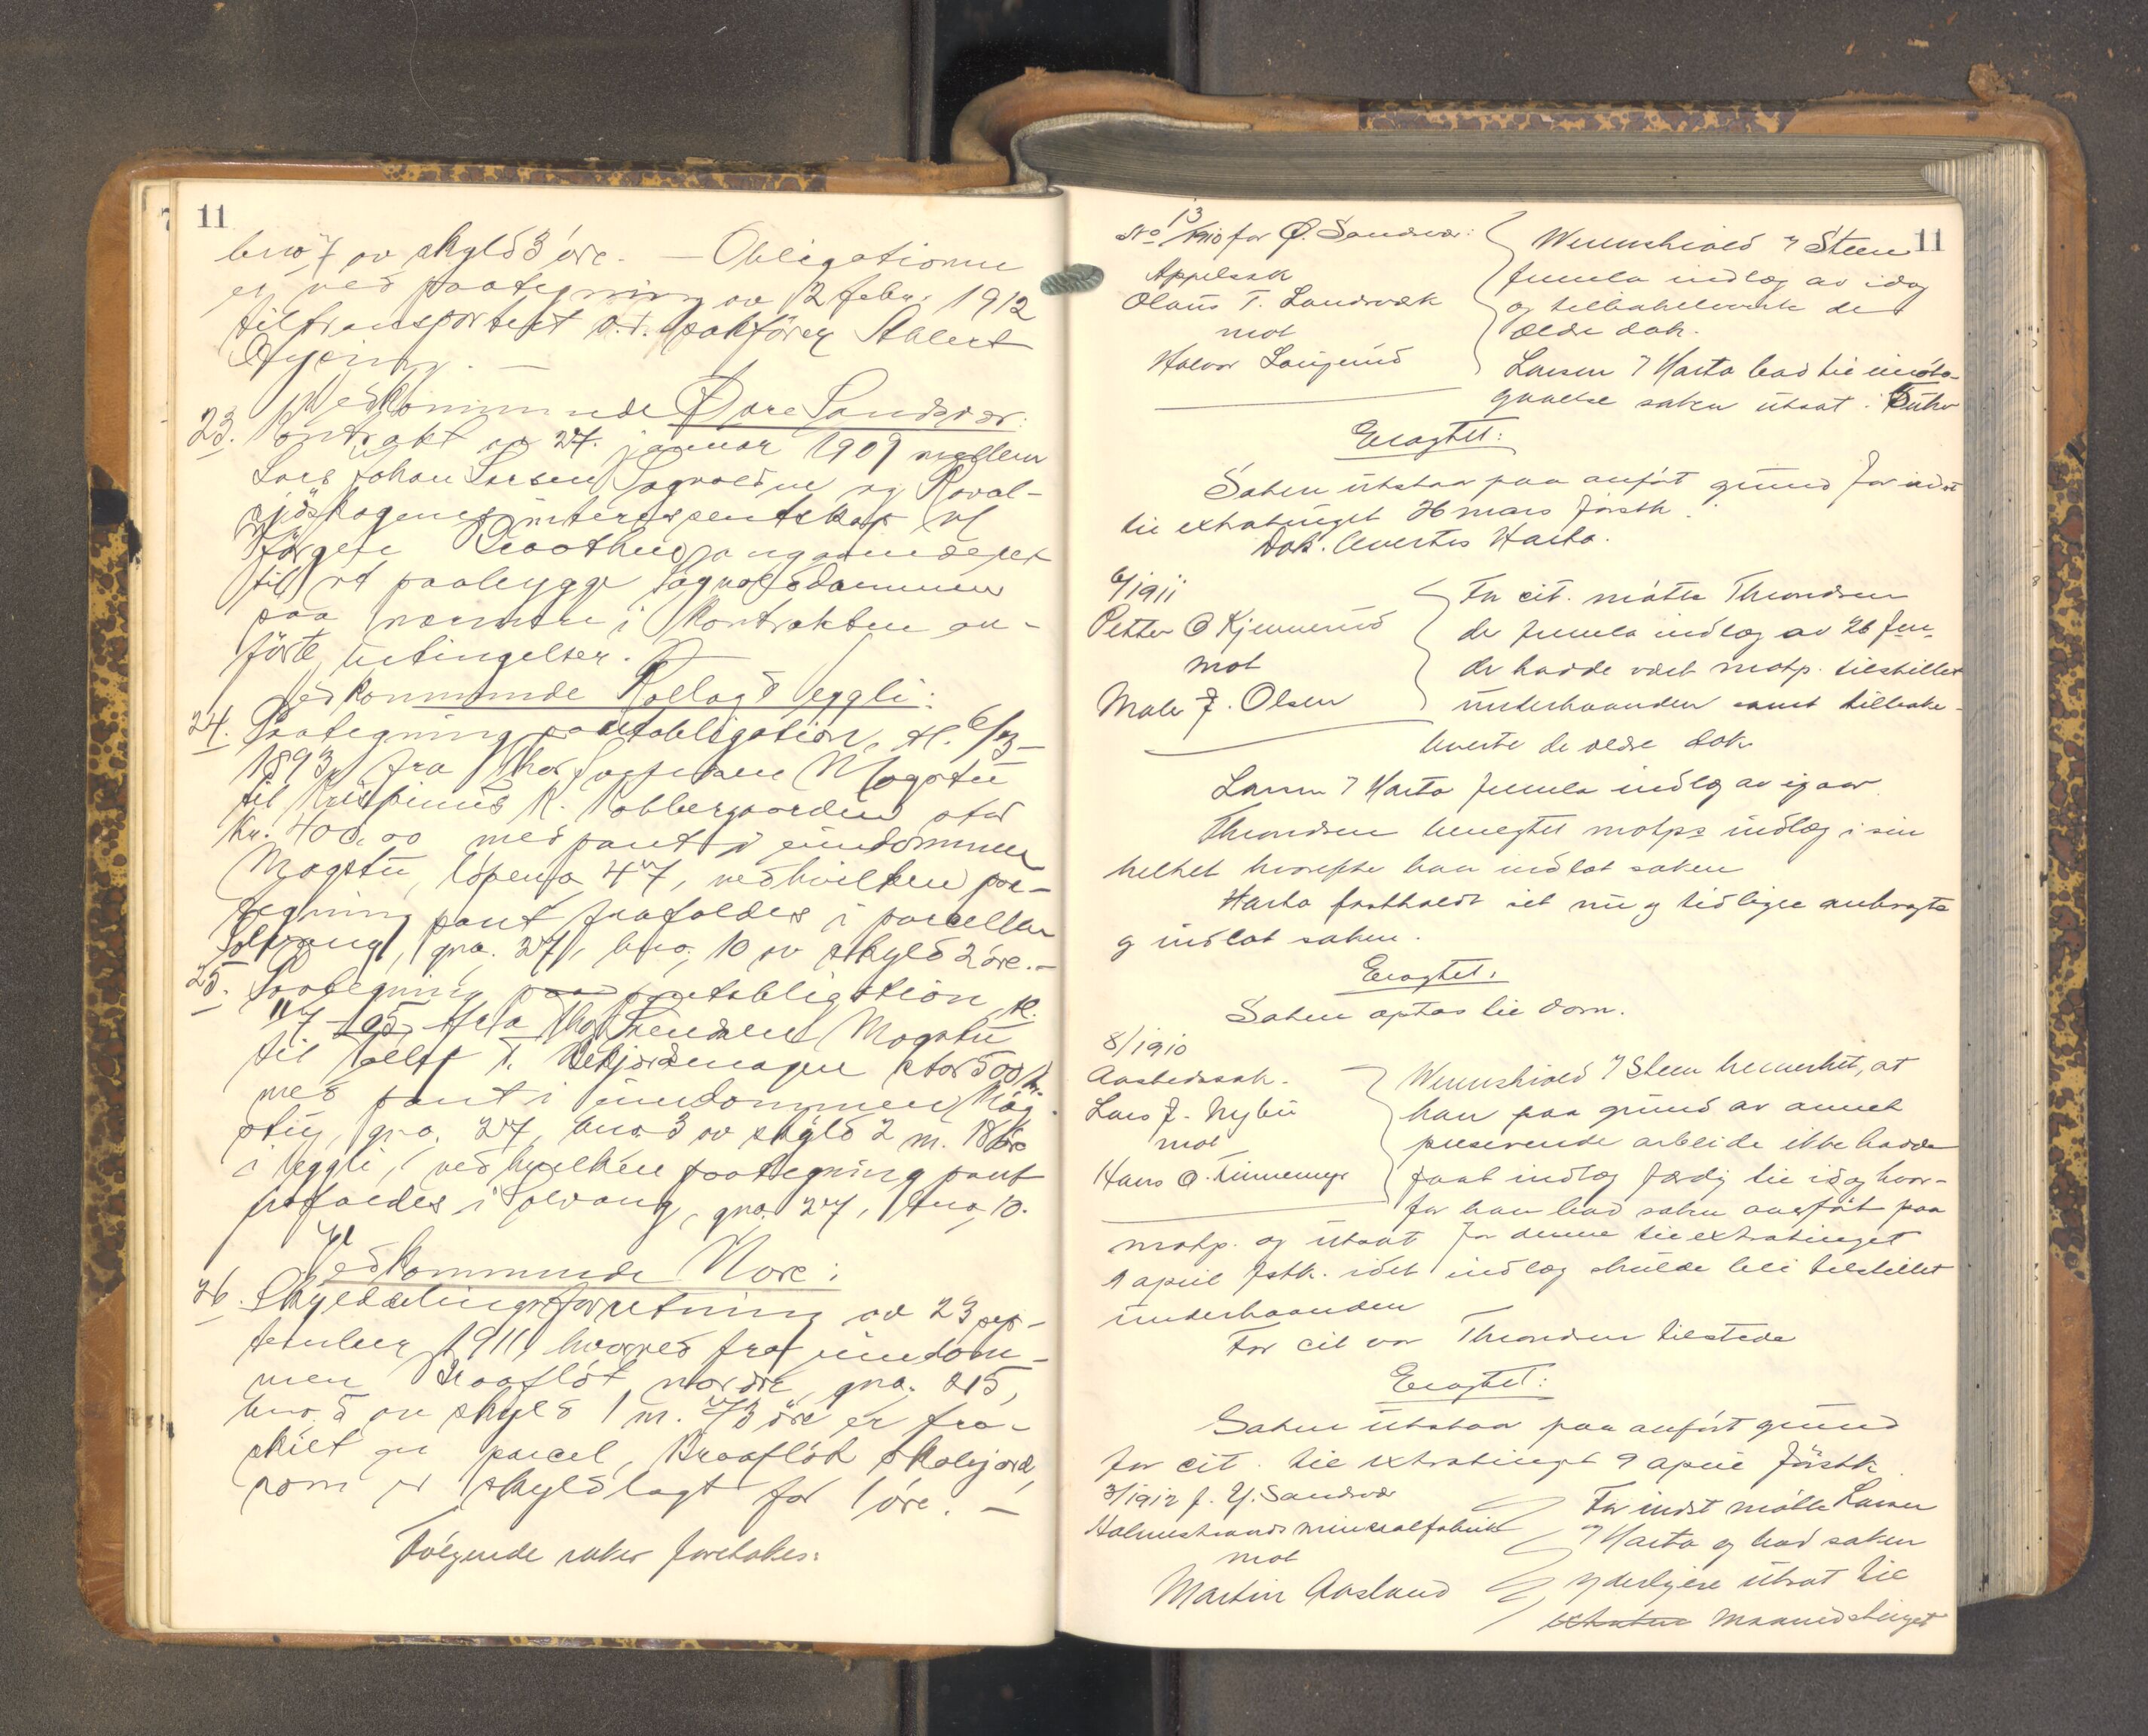 11
bno 7 av skyld 3 öre. — Obligationen
er ved paategning av 12 febr. 1912
tiltransportert o.r. sakförer Ahlert
Vedkommende Øvre Sandsvær:
23. Kontrakt av 27. januar 1909 mellem
Lars Johan Larsen Sagvolden og Raval-
sjöskogenes interessentskap v/
Jörgen angaaende ret
til at paabygge Sagvolddammen
paa nærmere i kontrakten an-
förte betingelser.
Vedkommende Rollag & Veggli:
24. Paategning pantobligation, tl. 6/3-
1893, fra Thor Mogstu
til Krispinus K. Kobbergaarden stor
Kr. 400.00 med pant i eiendommen
Mogstu, löpeno 47, ved hvilken paa-
tegning pant frafaldes i parcellen
Solvang, gno. 27, bno. 10 av skyld 2 öre.-
25. Paategning paa pantobligation, tl.
fra Thor Svendsen Mogstu
til T. stor 500 kr.
med pant i eiendommen Mog-
stu, gno. 27, bno 3 av skyld 2 m. 18 öre
i Veggli, ved hvilken paategning pant
frafaldes i Solvang, gno. 27, bno. 10.
Vedkommende Nore:
26. Skylddelingsforretning av 23 sep-
tember 1911 hvorved fra eiendom-
men Braaflöt nordre, gno. 215,
bno. 5 av skyld 1 m. 73 öre er fra-
skilt en parcel, Braaflöt skolejord,
som er skyldlagt for 1 öre. —
Fölgende saker foretokes:
11
No 13/1910 for Ø. Sandsvær:
Appelsak
Olaus T. Landsvæk
mot
Halvor Laugerud
Wennskiold & Steen
fremla indlæg av idag
og tilbakeleverte de
ældre dok.
Larsen & Harto bad til imöte-
gaaelse saken utsat.
Eragtet:
Saken utstaar paa anfört grund for indst
til extratinget 26 mars förstk.
Dok. levertes Harto.
6/1911
Petter O Kjennerud
mot
Maler J. Olsen
For cit. mötte Throndsen
der fremla indlæg av 26 f.m.
der hadde vært motp. tilstillet
underhaanden samt tilbake-
leverte de ældre dok.
Larsen & Harto fremla indlæg av igaar.
Throndsen benegtet motps indlæg i sin
helhet hvorefter han indlot saken
Harto fastholdt sit nu og tidligere anbragte
og indlot saken.
Eragtet:
Saken optas til dom.
8/1910
Aastedssak.
Lars J. Nybu
mot
Hans O. Tinnemyr
Wennskiold & Steen bemerket, at
han paa grund av annet
presserende arbeide ikke hadde
faat indlæg færdig til idag hvor-
for han bad saken overfört paa
motp. og utsat for denne til extratinget
9 april fstk. idet indlæg skulde bli tilstillet
underhaanden
For cit var Throndsen tilstede
Eragtet:
Saken utstaar paa anfört grund
for cit. til extratinget 9 april förstk.
3/1912 f. Y. Sandsvær
Holmestrands mineralfabrik
mot
Martin Aasland
For indst mötte Larsen
& Harto og bad saken
yderligere utsat til
extratin maanedstinget